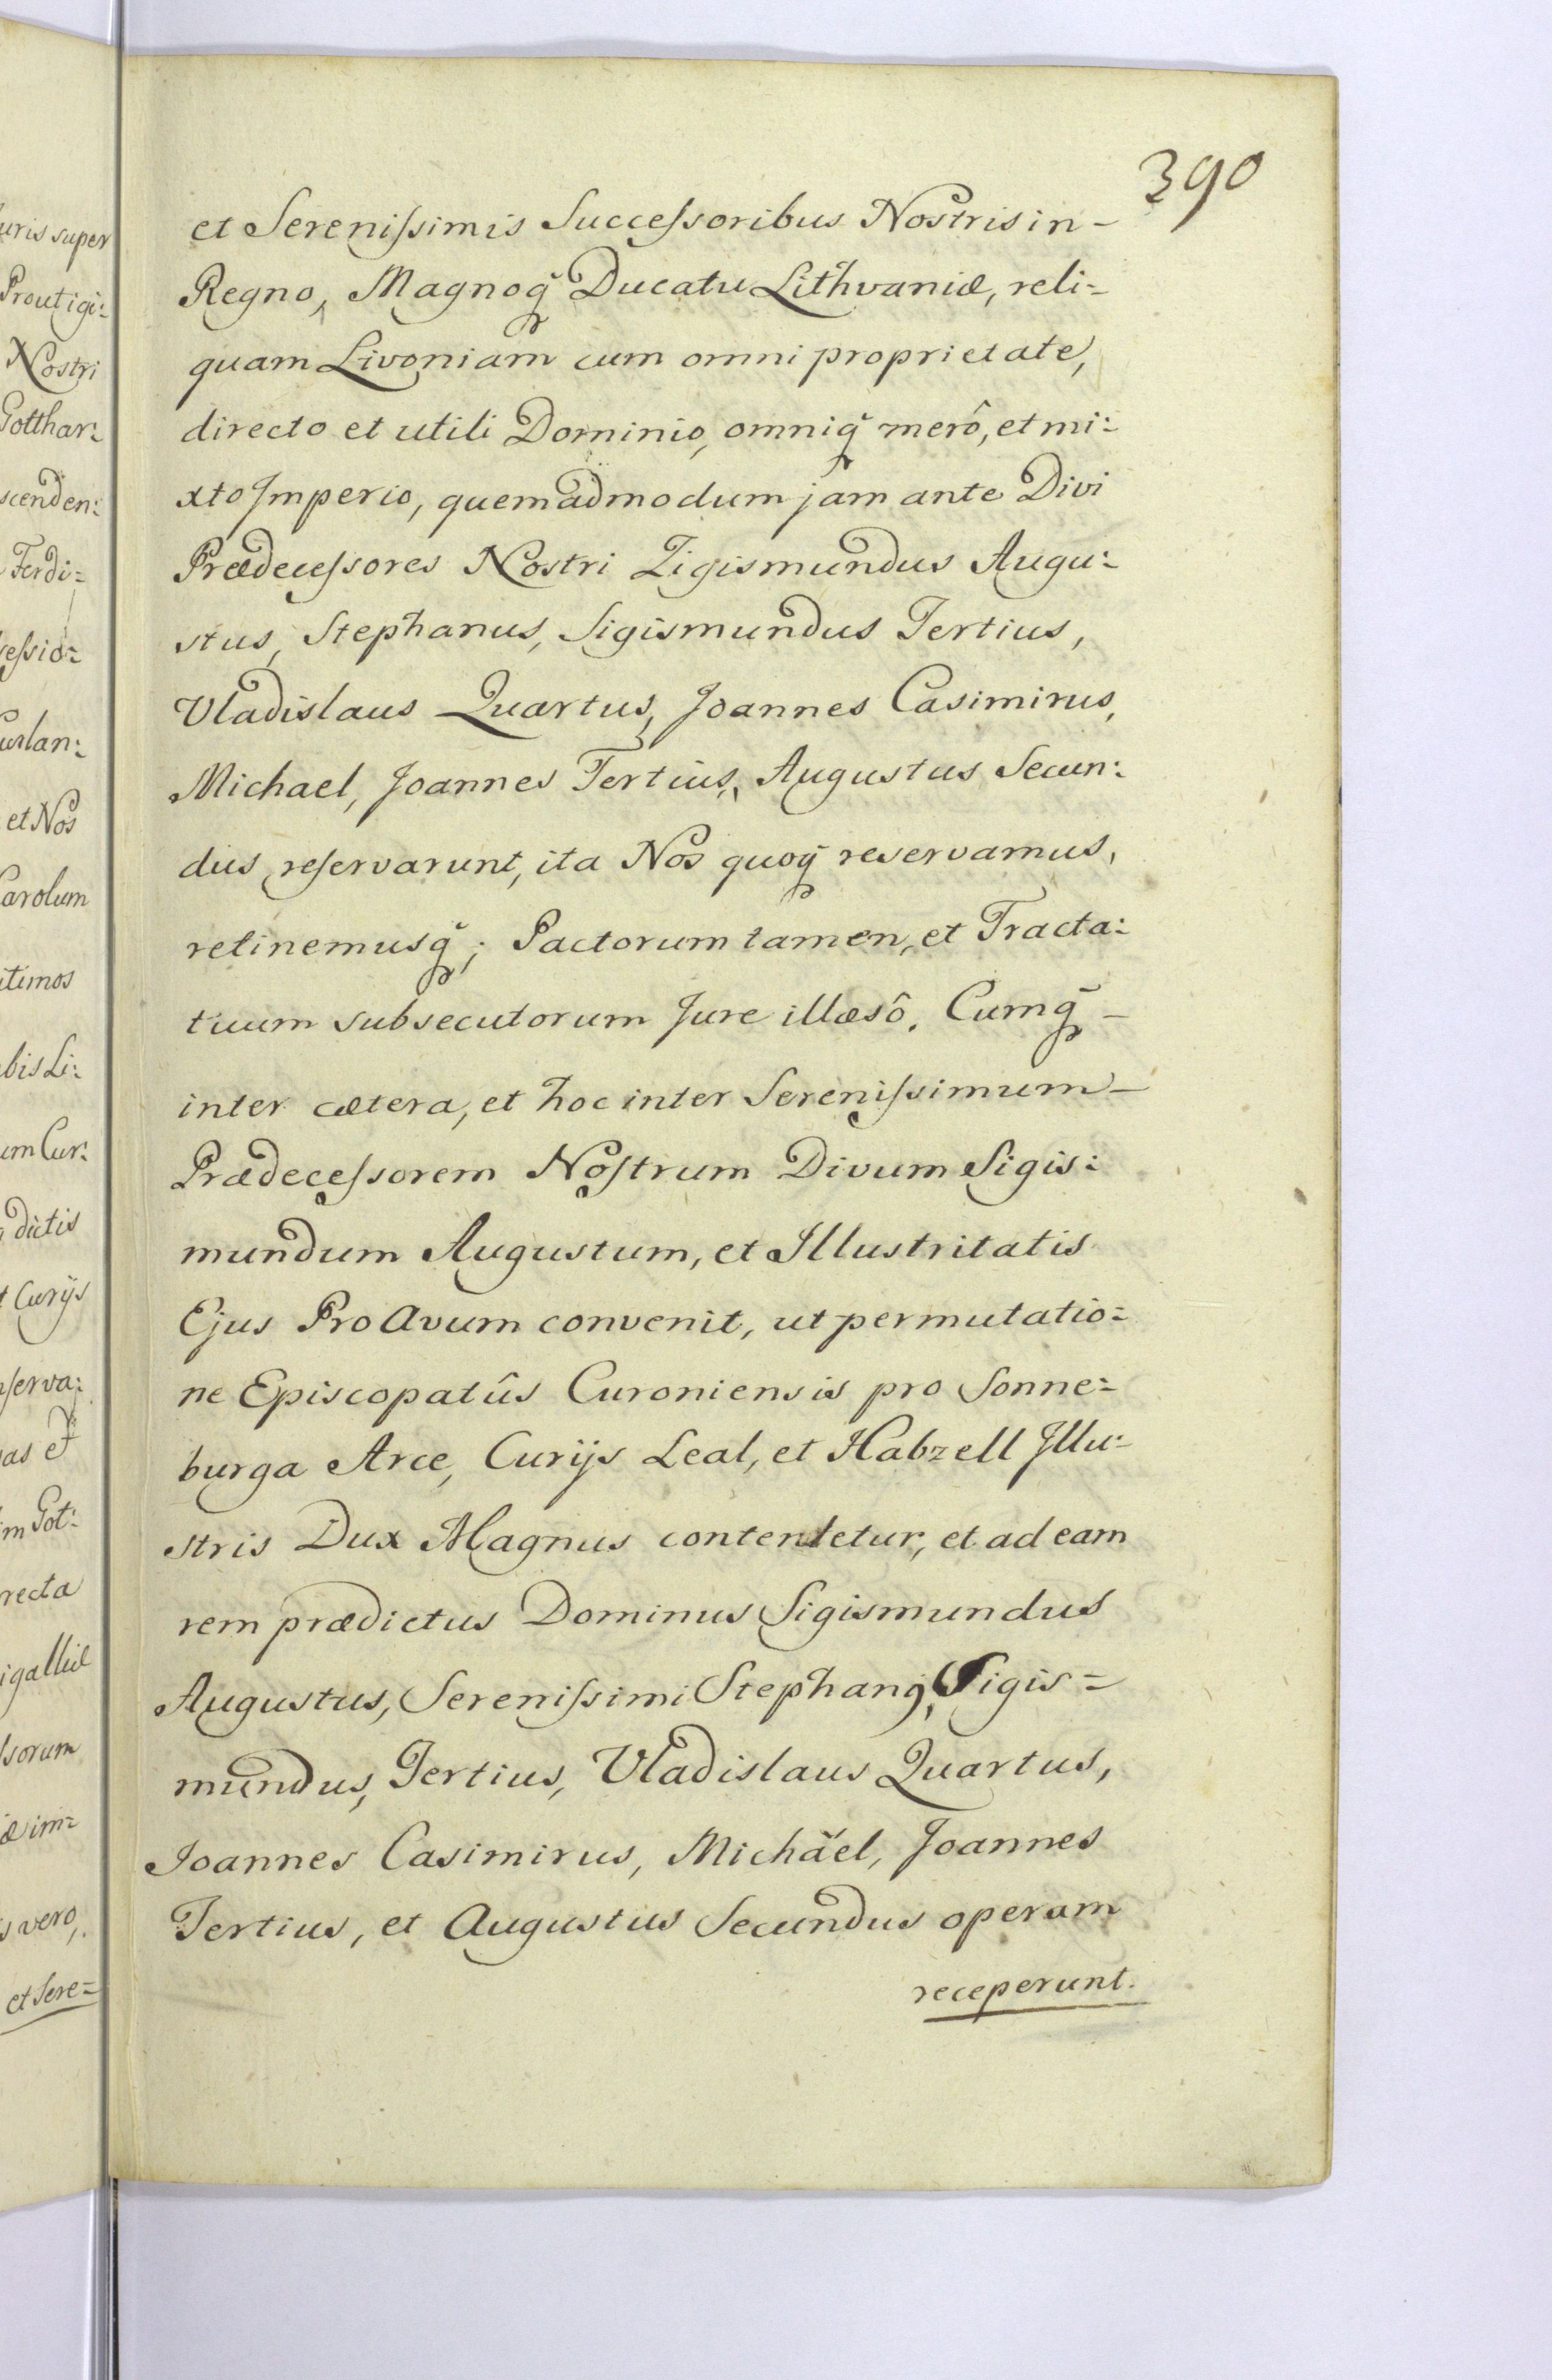 390
et Sereniſsimis Succeſsoribus Nostris in-
Regno, Magnoq̃ Ducatu Lithvaniæ, reli-
quam Livoniam cum omni proprietate,
directo et utili Dominio, omniq̃ merô, et mi:
xto Imperio, quemadmodum jam ante Divi
Prædeceſsores Nostri Zigismundus Augu:
stus, Stephanus, Sigismundus Tertius,
Vladislaus Quartus, Joannes Casimirus,
Michael, Joannes Tertius, Augustus Secun:
dus reſervarunt, ita Nos quoq̃ reservamus,
retinemusq̃; Pactorum tamen, et Tracta:
tuum subsecutorum Jure illæsô. Cumq̃ -
inter cætera, et hoc inter Sereniſsimum -
Prædeceſsorem Noſtrum Divum Sigis:
mundum Augustum, et Illustritatis
Ejus ProAvum convenit, ut permutatio=
ne Episcopatûs Curoniensis pro Sonne=
burga Arce, Curijs Leal, et Habzell Illu-
stris Dux Magnus contentetur, et ad eam
rem prædictus Dominus Sigismundus
Augustus, Sereniſsimi Stephanꝯ, Sigis=
mundus, Tertius, Vladislaus Quartus,
Joannes Casimirus, Michäel, Joannes
Tertius, et Augustus Secundus operam
receperunt.
uris super
Prout igi:
Nostri
Gotthar:
scenden:
Ferdi=
ſeſsio=
urlan:
et Nos
Carolum
itimos
bis Li:
um Cur:
dictis
t Curijs
nſerva:
as et
im Got:
recta
igalliæ
ſsorum
æ im=
s vero,
et Sere=